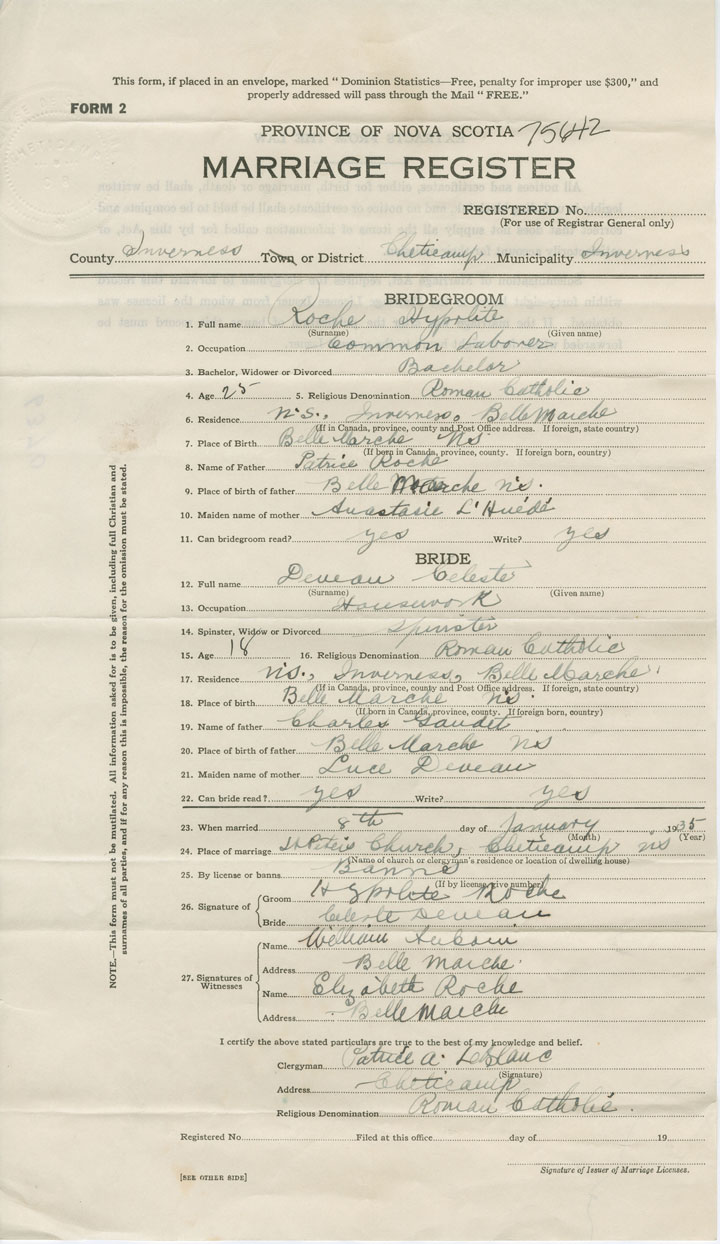 This form, if placed in an envelope, marked “ Dominion Statistics—Free, penalty for improper use $300,” and
properly addressed will pass through the Mail “ FREE.”
FORM 2
PROVINCE OF NOVA SCOTIA 75642
MARRIAGE REGISTER
REGISTERED No.
(For use of Registrar General only)
County Inverness Town or District Cheticamp Municipality Inverness
BRIDEGROOM
1. Full name Roche Hypolite
(Surname) (Given name)
2. Occupation Common Laborer
3. Bachelor, Widower or Divorced Bachelor
4. Age 25 5. Religious Denomination Roman Catholic
6. Residence N.S., Inverness, Belle Marche
(If in Canada, province, county and Post Office address. If foreign, state country)
7. Place of Birth Belle Marche N.S.
(If born in Canada, province, county. If foreign born, country)
8. Name of Father Patrice Roche
9. Place of birth of father Belle Marche N.S.
10. Maiden name of mother Anastasie L'Huédé
11. Can bridegroom read? yes Write? yes
BRIDE
12. Full name Deveau Celeste
(Surname) (Given name)
13. Occupation Housework
14. Spinster, Widow or Divorced Spinster
15. Age 18 16. Religious Denomination Roman Catholic
17. Residence N.S., Inverness, Belle Marche.
(If in Canada, province, county and Post Office address. If foreign, state country)
18. Place of birth Belle Marche N.S.
(If born in Canada, province, county. If foreign born, country)
19. Name of father Charles Gaudet
20. Place of birth of father Belle Marche N.S
21. Maiden name of mother Luce Deveau
22. Can bride read? yes Write? yes
23. When married 8th day of January 1935
(Month) (Year)
24. Place of marriage St Peters Church, Cheticamp N.S
(Name of church or clergyman's residence or location of dwelling house)
25. By license or banns Banns
(If by license give number)
26. Signature of Groom Hypolite Roche
Bride Celeste Deveau
27. Signatures of Witnesses
Name William Aucoin
Address Belle Marche.
Name Elizabeth Roche
Address Belle Marche
I certify the above stated particulars are true to the best of my knowledge and belief.
Clergyman Patrice A. LeBlanc
(Signature)
Address Cheticamp
Religious Denomination Roman Catholic.
Registered No. Filed at this office day of 19
Signature of Issuer of Marriage Licenses.
[SEE OTHER SIDE]
NOTE.—This form must not be mutilated. All information asked for is to be given, including full Christian and
surnames of all parties, and if for any reason this is impossible, the reason for the omission must be stated.